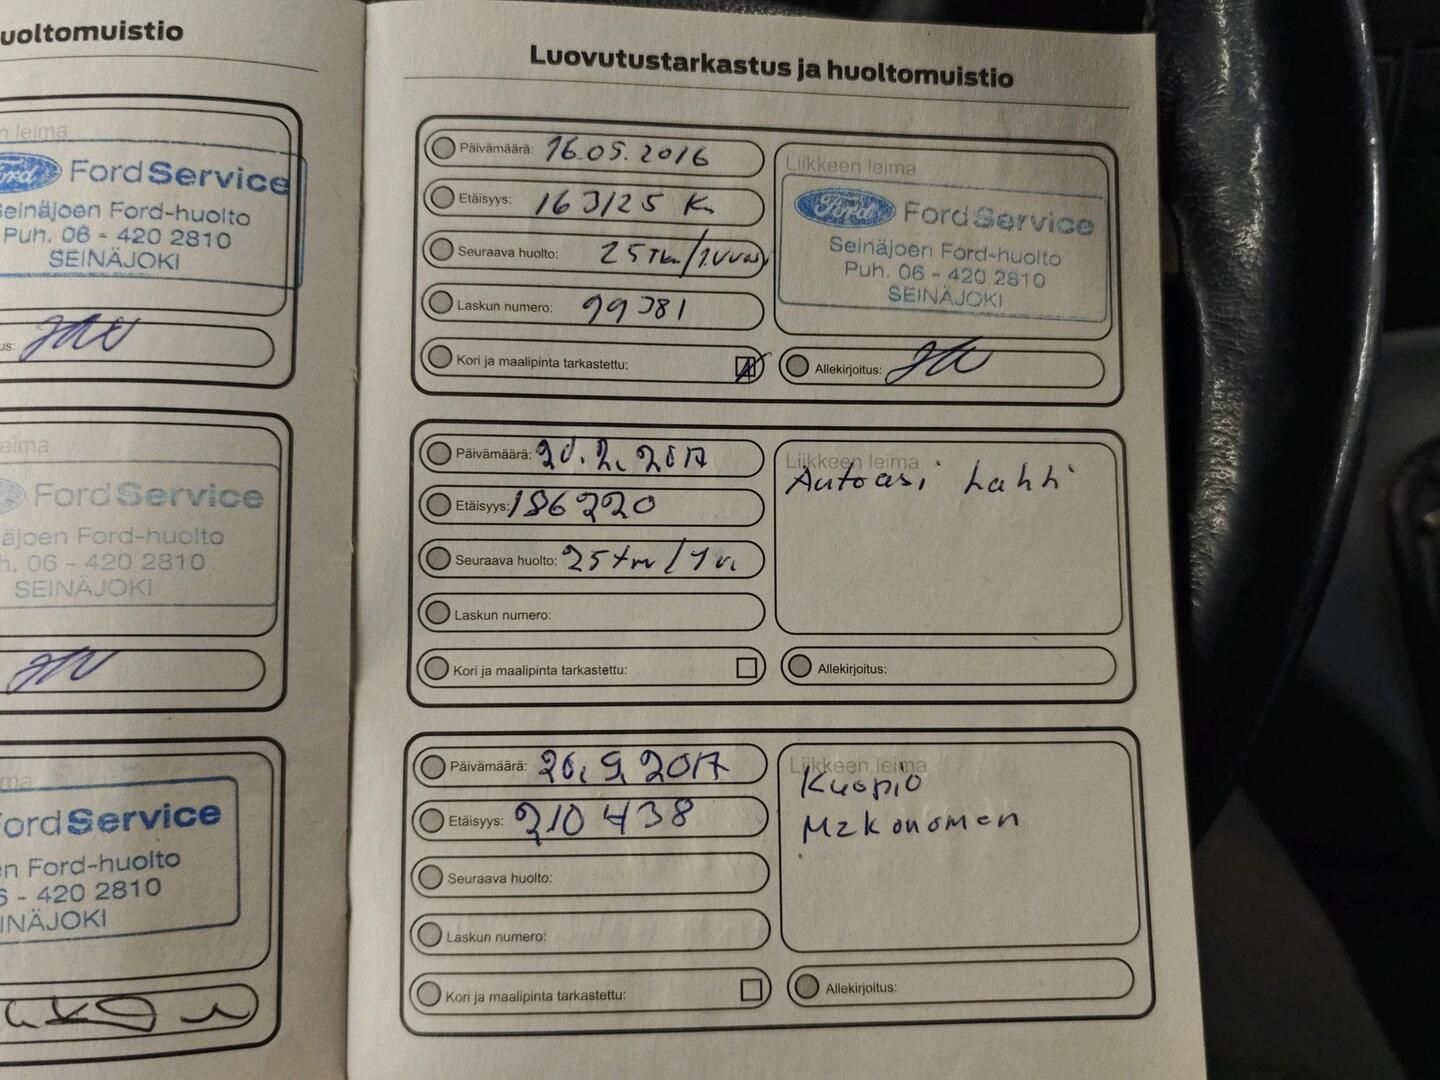 uoltomuistio
n leima
Ford
FordService
Seinäjoen Ford-huolto
Puh. 06 - 420 2810
SEINÄJOKI
us:
eima
FordService
äjoen Ford-huolto
h. 06 - 420 2810
SEINÄJOKI
ma
FordService
en Ford-huolto
6 - 420 2810
INÄJOKI
Luovutustarkastus ja huoltomuistio
Päivämäärä: 16.05.2016
Etäisyys: 163125 Km
Seuraava huolto: 25 tkm/1vuosi
Laskun numero: 99381
Kori ja maalipinta tarkastettu:
Liikkeen leima
Ford
FordService
Seinäjoen Ford-huolto
Puh. 06 - 420 2810
SEINÄJOKI
Allekirjoitus:
Päivämäärä: 20.2.2017
Etäisyys: 186220
Seuraava huolto: 25 tkm/1v.
Laskun numero:
Kori ja maalipinta tarkastettu:
Liikkeen leima
Autoasi Lahti
Allekirjoitus:
Päivämäärä: 26.9.2017
Etäisyys: 210 438
Seuraava huolto:
Laskun numero:
Kori ja maalipinta tarkastettu:
Liikkeen leima
Kuopio
Mekonomen
Allekirjoitus: